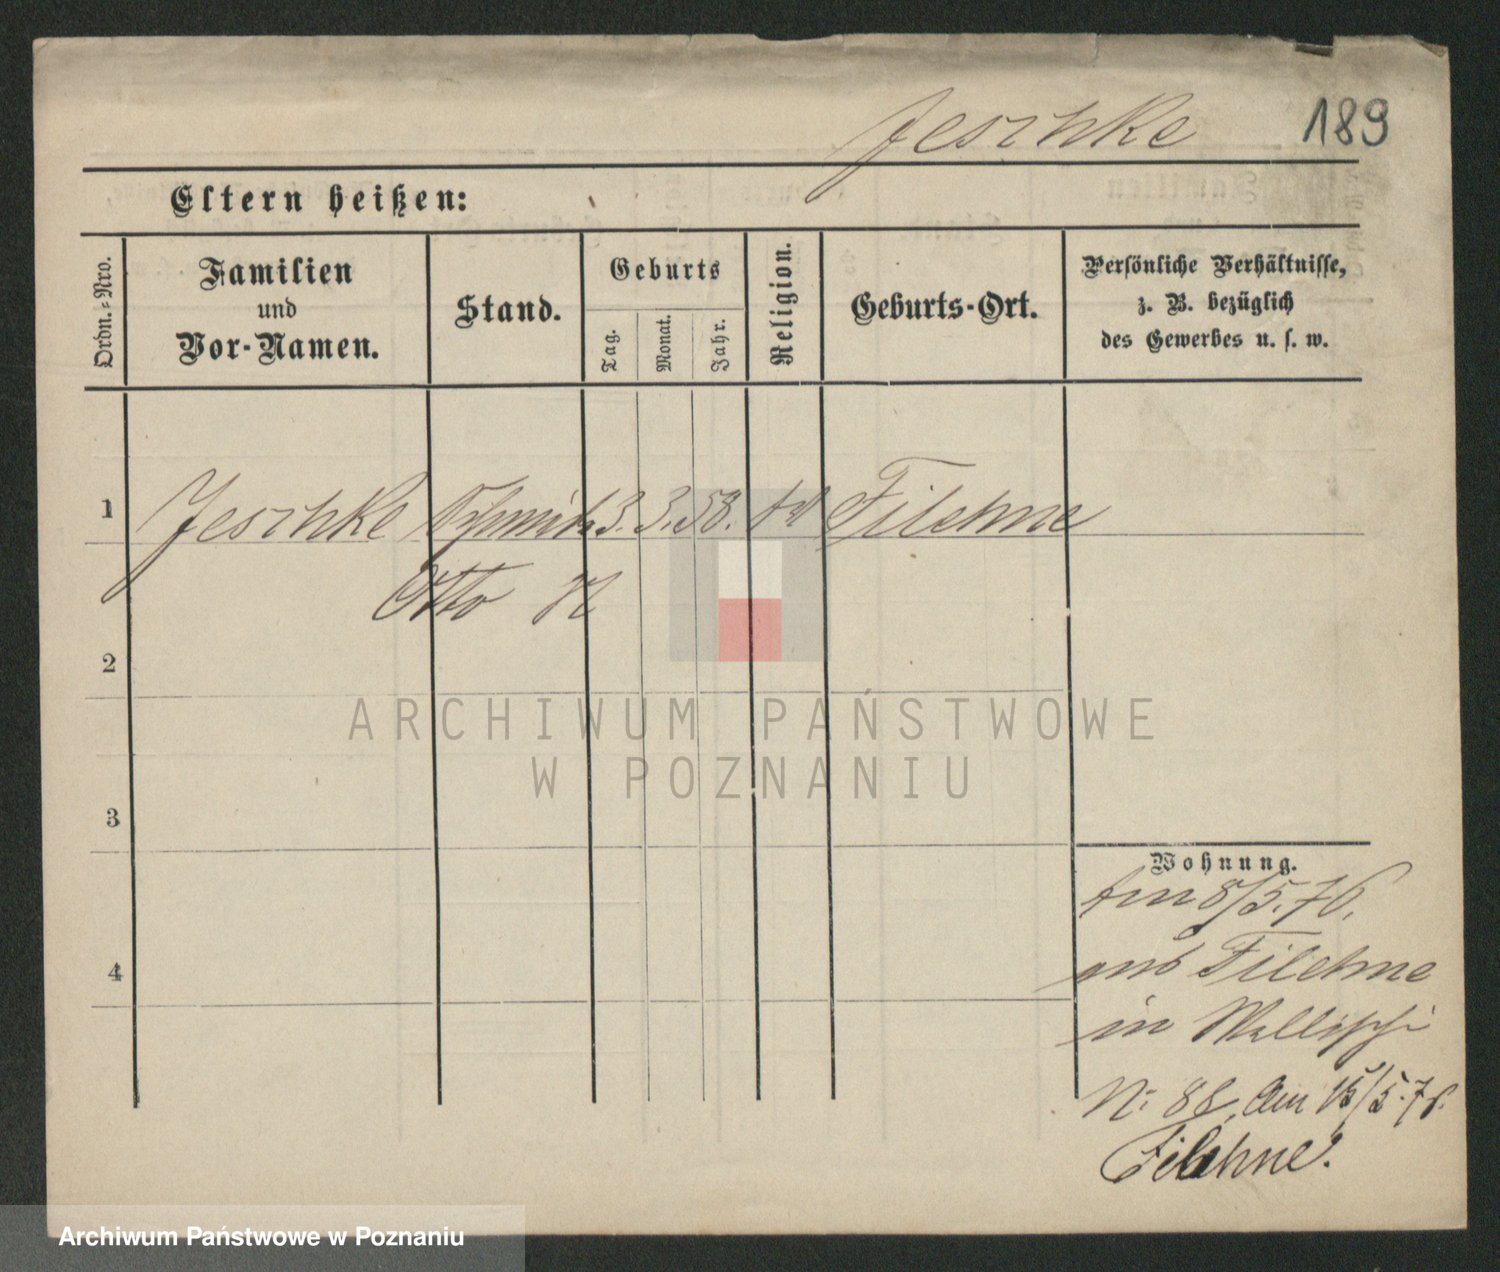 Jeschke 189
Eltern heißen:
Ordn.-Nro.
Familien
und
Vor-Namen.
Stand.
Geburts
Tag.
Monat.
Jahr.
Religion.
Geburts-Ort.
Persönliche Verhältnisse,
z. B. bezüglich
des Gewerbes u. s. w.
1 Jeschke 3. 3. 58. Filehne
Otto
2
ARCHIWUM PAŃSTWOWE
W POZNANIU
3
Wohnung.
8/5.76.
4 aus Filehne
in Wallischei
No 88, Am 15/5.76.
Filehne.
Archiwum Państwowe w Poznaniu